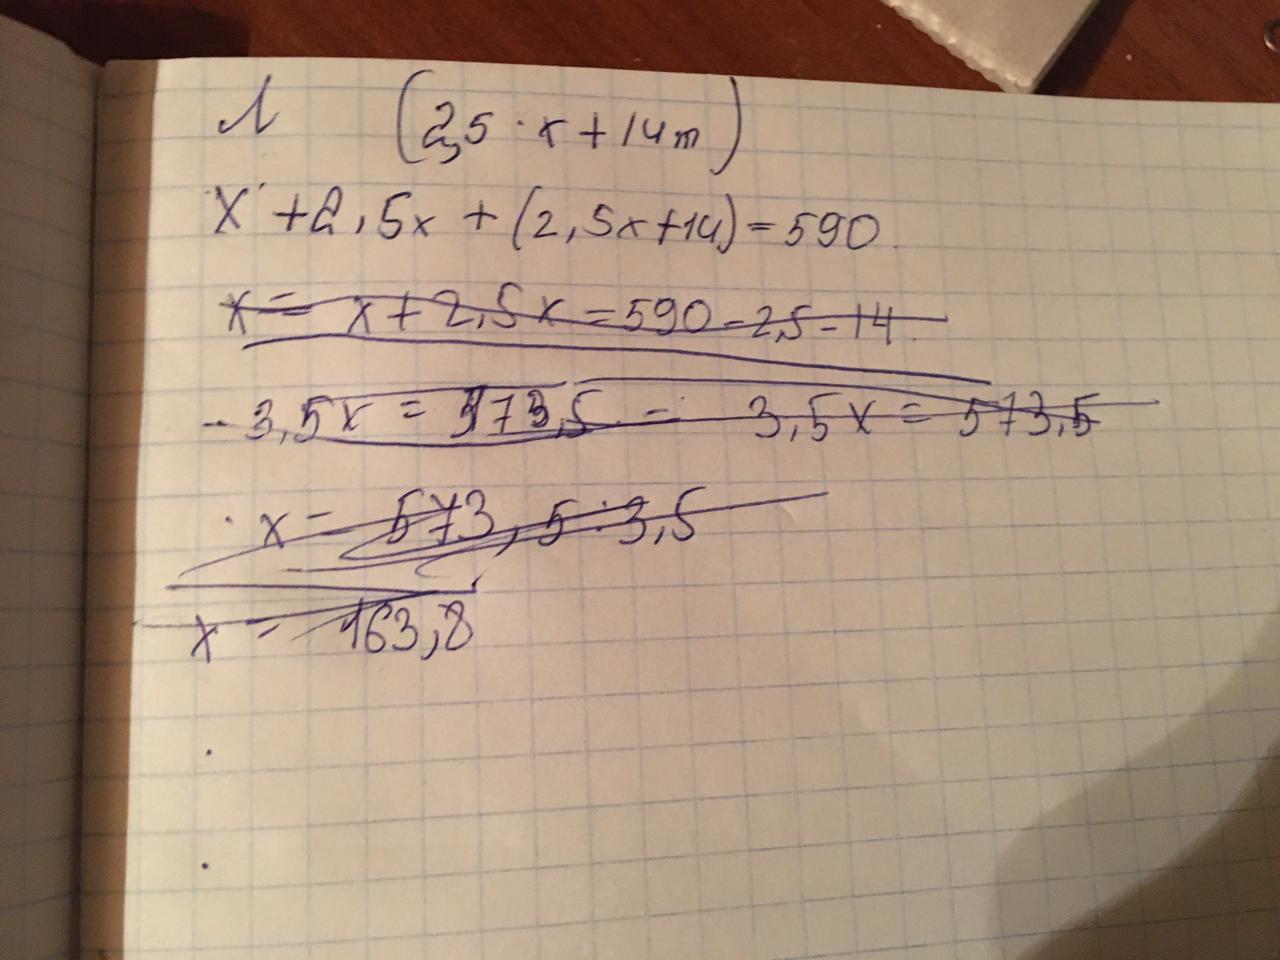 Л (2,5 · x + 14 т)
X + 2,5x + (2,5x + 14) = 590.
x = x + 2,5x = 590 - 2,5 - 14.
- 3,5x = 573,5 - 3,5x = 573,5
x = 573,5 : 3,5
x = 163,8